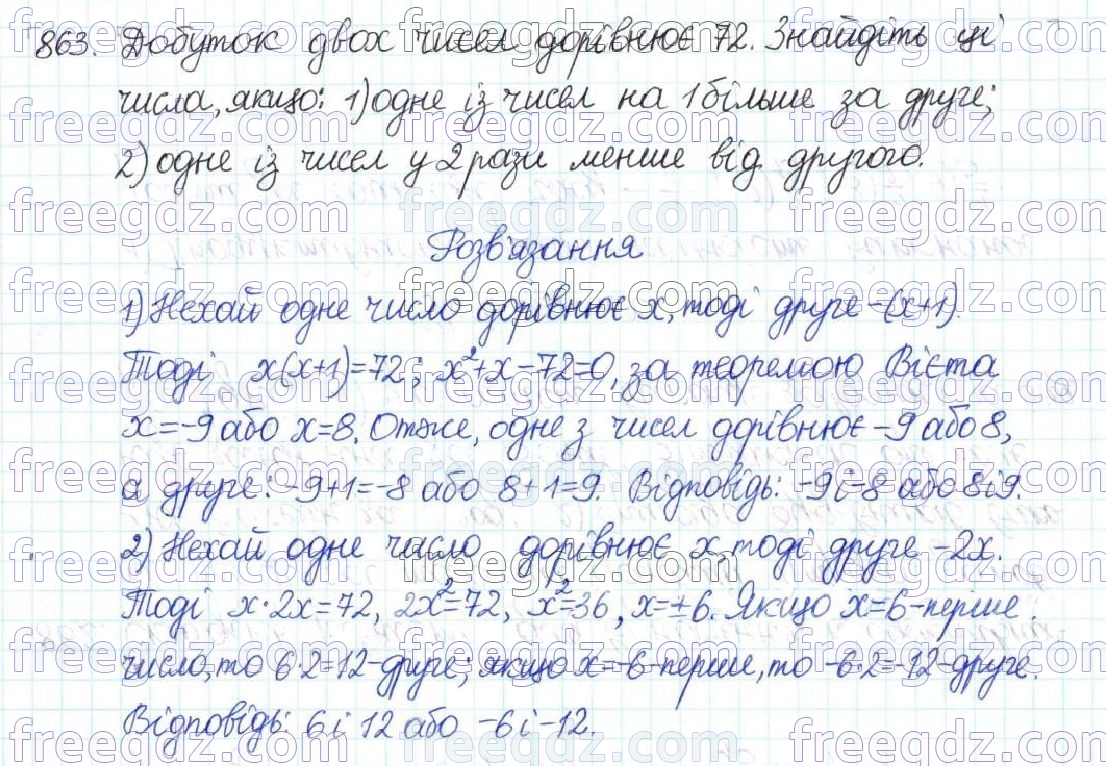 863. Добуток двох чисел дорівнює 72. Знайдіть ці
числа, якщо: 1) одне із чисел на 1 більше за друге;
2) одне із чисел у 2 рази менше від другого.
Розв'язання
1) Нехай одне число дорівнює x, тоді друге - (x+1).
Тоді x(x+1)=72; x²+x-72=0, за теоремою Вієта
x=-9 або x=8. Отже, одне з чисел дорівнює -9 або 8,
а друге: -9+1=-8 або 8+1=9. Відповідь: -9 і -8 або 8 і 9.
2) Нехай одне число дорівнює x, тоді друге - 2x.
Тоді x·2x=72, 2x²=72, x²=36, x=±6. Якщо x=6-перше
число, то 6·2=12-друге; якщо x=-6-перше, то -6·2=-12-друге.
Відповідь: 6 і 12 або -6 і -12.